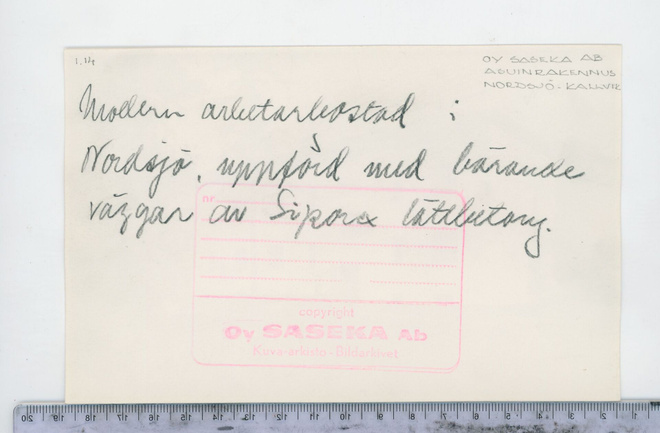 1.14
OY SASEKA AB
ASUINRAKENNUS
NORDSJÖ - KALLVIK
Modern arbetarbostad i
Nordsjö, uppförd med bärande
väggar av Siporex lättbetong.
nr
copyright
Oy SASEKA Ab
Kuva-arkisto - Bildarkivet
20 19 18 17 16 15 14 13 12 11 10 9 8 7 6 5 4 3 2 1